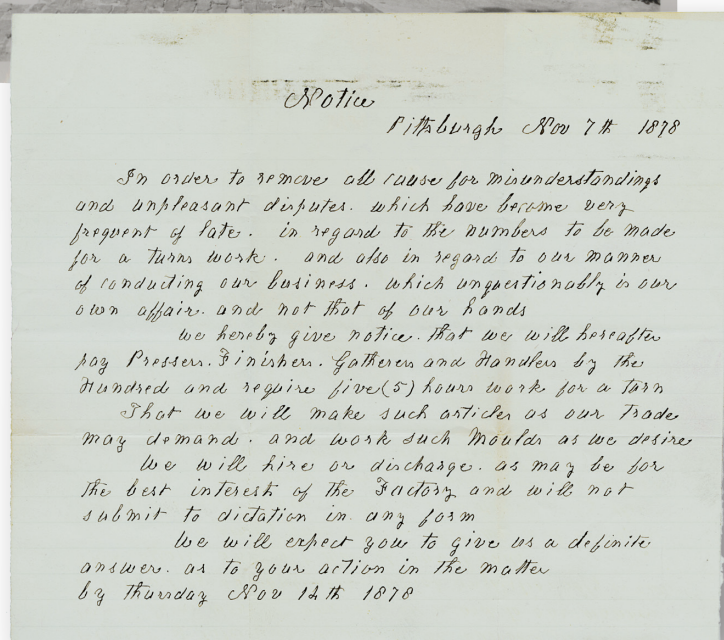 Notice
Pittsburgh Nov 7th 1878
In order to remove all cause for misunderstandings
and unpleasant disputes. which have become very
frequent of late. in regard to the numbers to be made
for a turns work. and also in regard to our manner
of conducting our business. which unquestionably is our
own affair. and not that of our hands
We hereby give notice. that we will hereafter
pay Pressers. Finishers. Gatherers and Handlers by the
Hundred and require five (5) hours work for a turn
That we will make such articles as our Trade
may demand. and work such Moulds as we desire
We will hire or discharge. as may be for
the best interest of the Factory and will not
submit to dictation in any form
We will expect you to give us a definite
answer. as to your action in the matter
by Thursday Nov 14th 1878